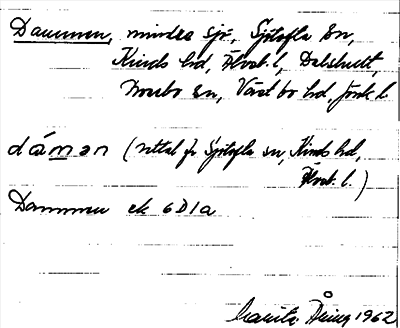 Dammen, mindre sjö, Sjötofta sn,
Kinds hd, Älvsb. l, Dalshult,
Bosebo sn, Västbo hd, Jönk. l
dámən (uttal fr Sjötofta sn, Kinds hd,
Älvsb. l.)
Dammen ek 6D1a
1962